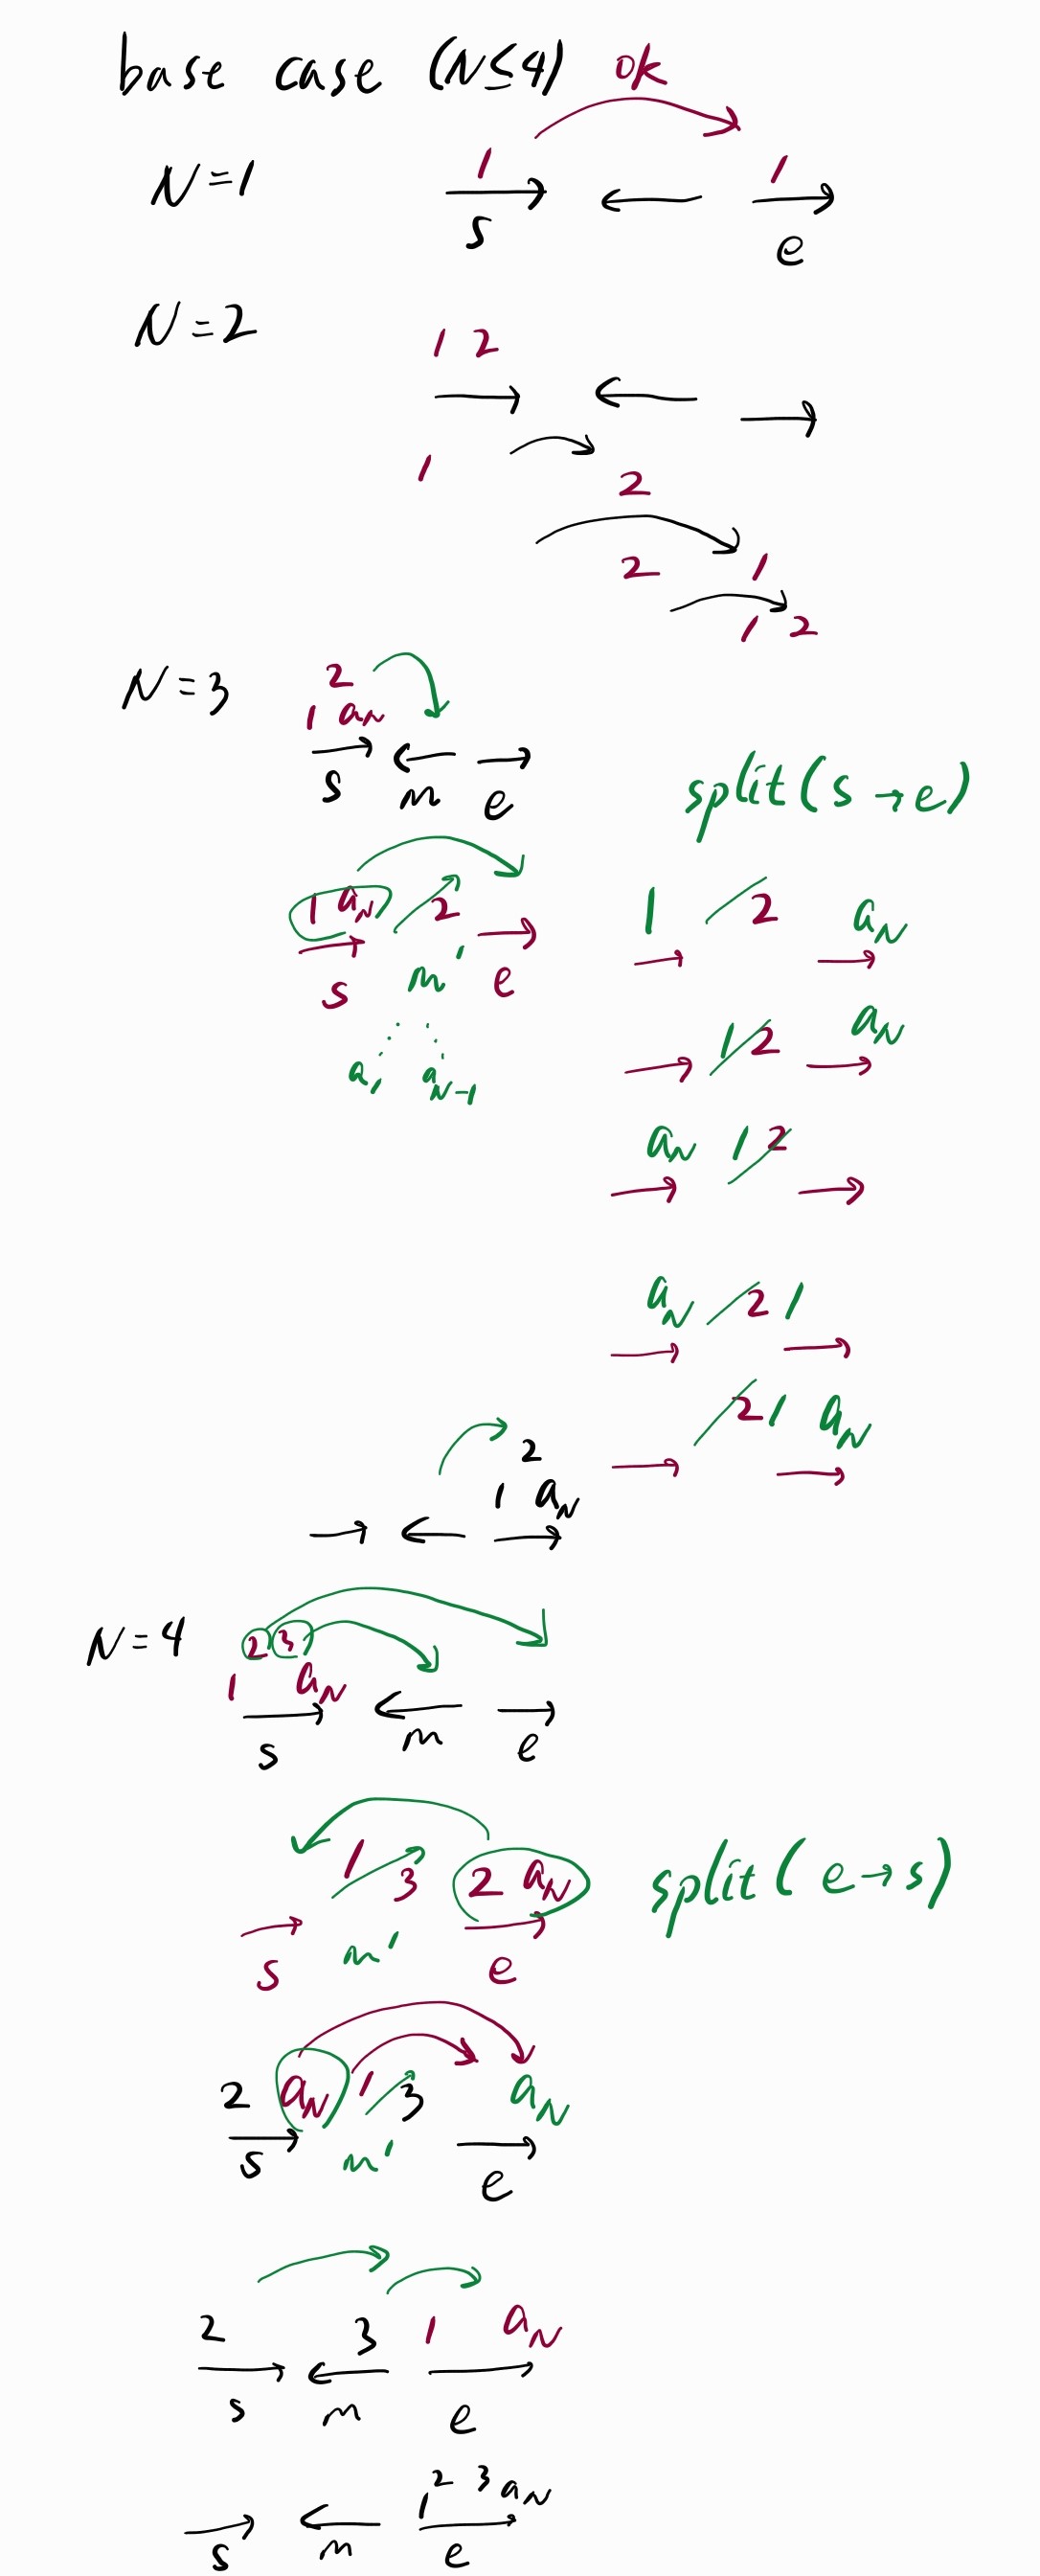 base case (N≤4) ok
N=1 1 1
s e
N=2
1 2
1
2
2 1
1 2
N=3 2
1 aN
s m e
split(s→e)
1 aN 2
s m' e
1 2 aN
a1 aN-1
1 2 aN
aN 1 2
aN 2 1
2 1 aN
2
1 aN
N=4 2 3
1 aN
s m e
1 3 2 aN
split(e→s)
s m' e
2 aN 1 3 aN
s m' e
2 3 1 aN
s m e
1 2 3 aN
s m e